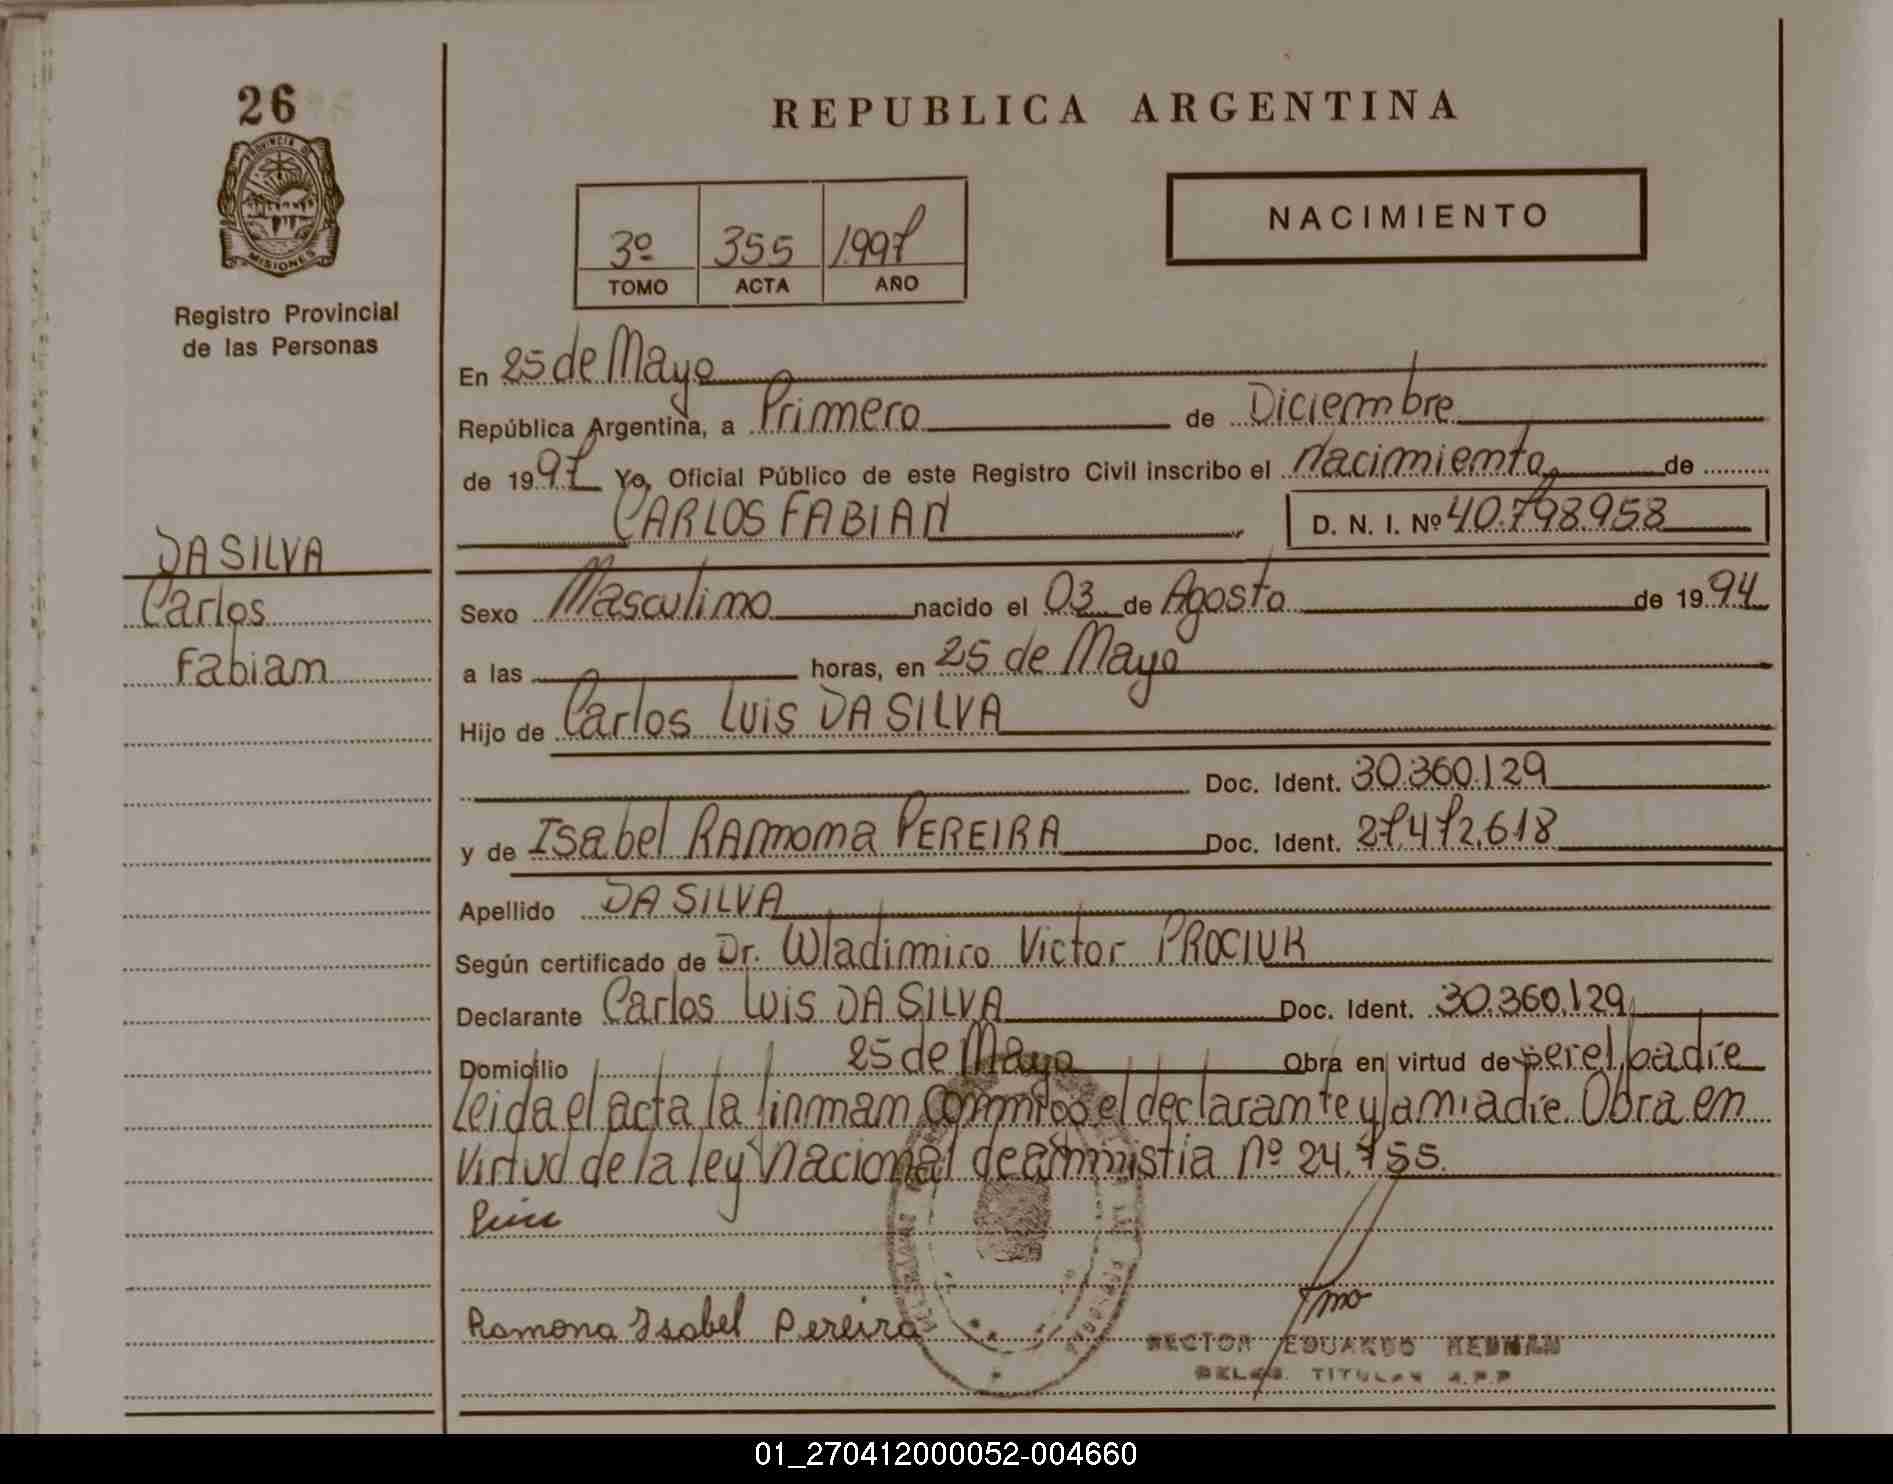 26
PROVINCIA DE
MISIONES
Registro Provincial
de las Personas
DA SILVA
Carlos
Fabian
REPUBLICA ARGENTINA
NACIMIENTO
3º 355 1997
TOMO ACTA AÑO
En 25 de Mayo
República Argentina, a Primero de Diciembre
de 1997 Yo, Oficial Público de este Registro Civil inscribo el nacimiento de
CARLOS FABIAN D. N. I. Nº 40.798.958
Sexo Masculino nacido el 03 de Agosto de 1994
a las horas, en 25 de Mayo
Hijo de Carlos Luis DA SILVA
Doc. Ident. 30.360.129
y de Isabel RAmona PEREIRA Doc. Ident. 27.472.618
Apellido DA SILVA
Según certificado de Dr. Wladimiro Victor PROCIUK
Declarante Carlos Luis DA SILVA Doc. Ident. 30.360.129
Domicilio 25 de Mayo Obra en virtud de ser el padre
Leida el acta la firman conmigo el declarante y la madre. Obra en
virtud de la ley nacional de amnistia nº 24.755.
Ramona Isabel Pereira
HECTOR EDUARDO
TITULAR R.P.P
01_270412000052-004660